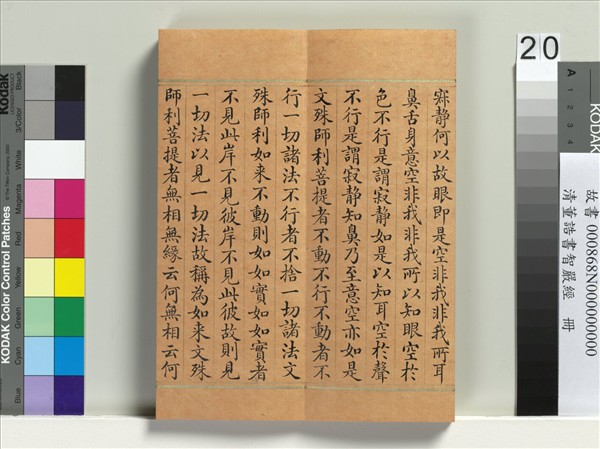 寂静何以故眼即是空非我非我所耳
鼻舌身意空非我非我所以知眼空於
色不行是謂寂静如是以知耳空於聲
不行是謂寂静知鼻乃至意空亦如是
文殊師利菩提者不動不行不動者不
行一切諸法不行者不捨一切諸法文
殊師利如来不動則如如實如如實者
不見此岸不見彼岸不見此彼故則見
一切法以見一切法故稱為如来文殊
師利菩提者無相無緣云何無相云何
故書 000868N000000000
清董誥書智嚴經 冊
20
A 1 2 3 4
KODAK
Kodak
KODAK Color Control Patches
Blue Cyan Green Yellow Red Magenta White 3/Color Black